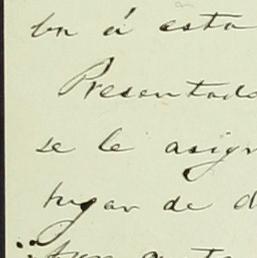 ba á esta
Presentado
se le asign
lugar de d